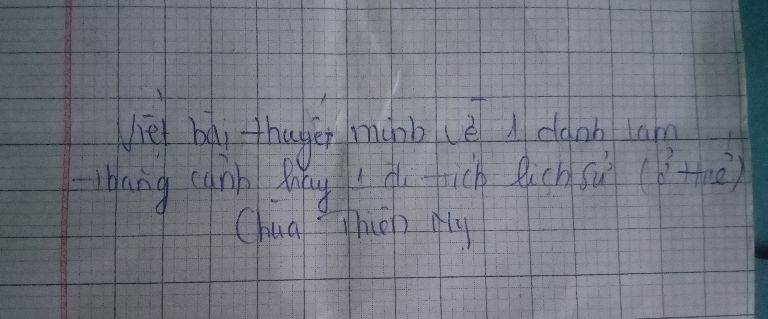 Viết bài thuyết minh về 1 danh lam
thắng cảnh hay 1 di tích lịch sử (ở Huế)
Chùa Thiên Mụ